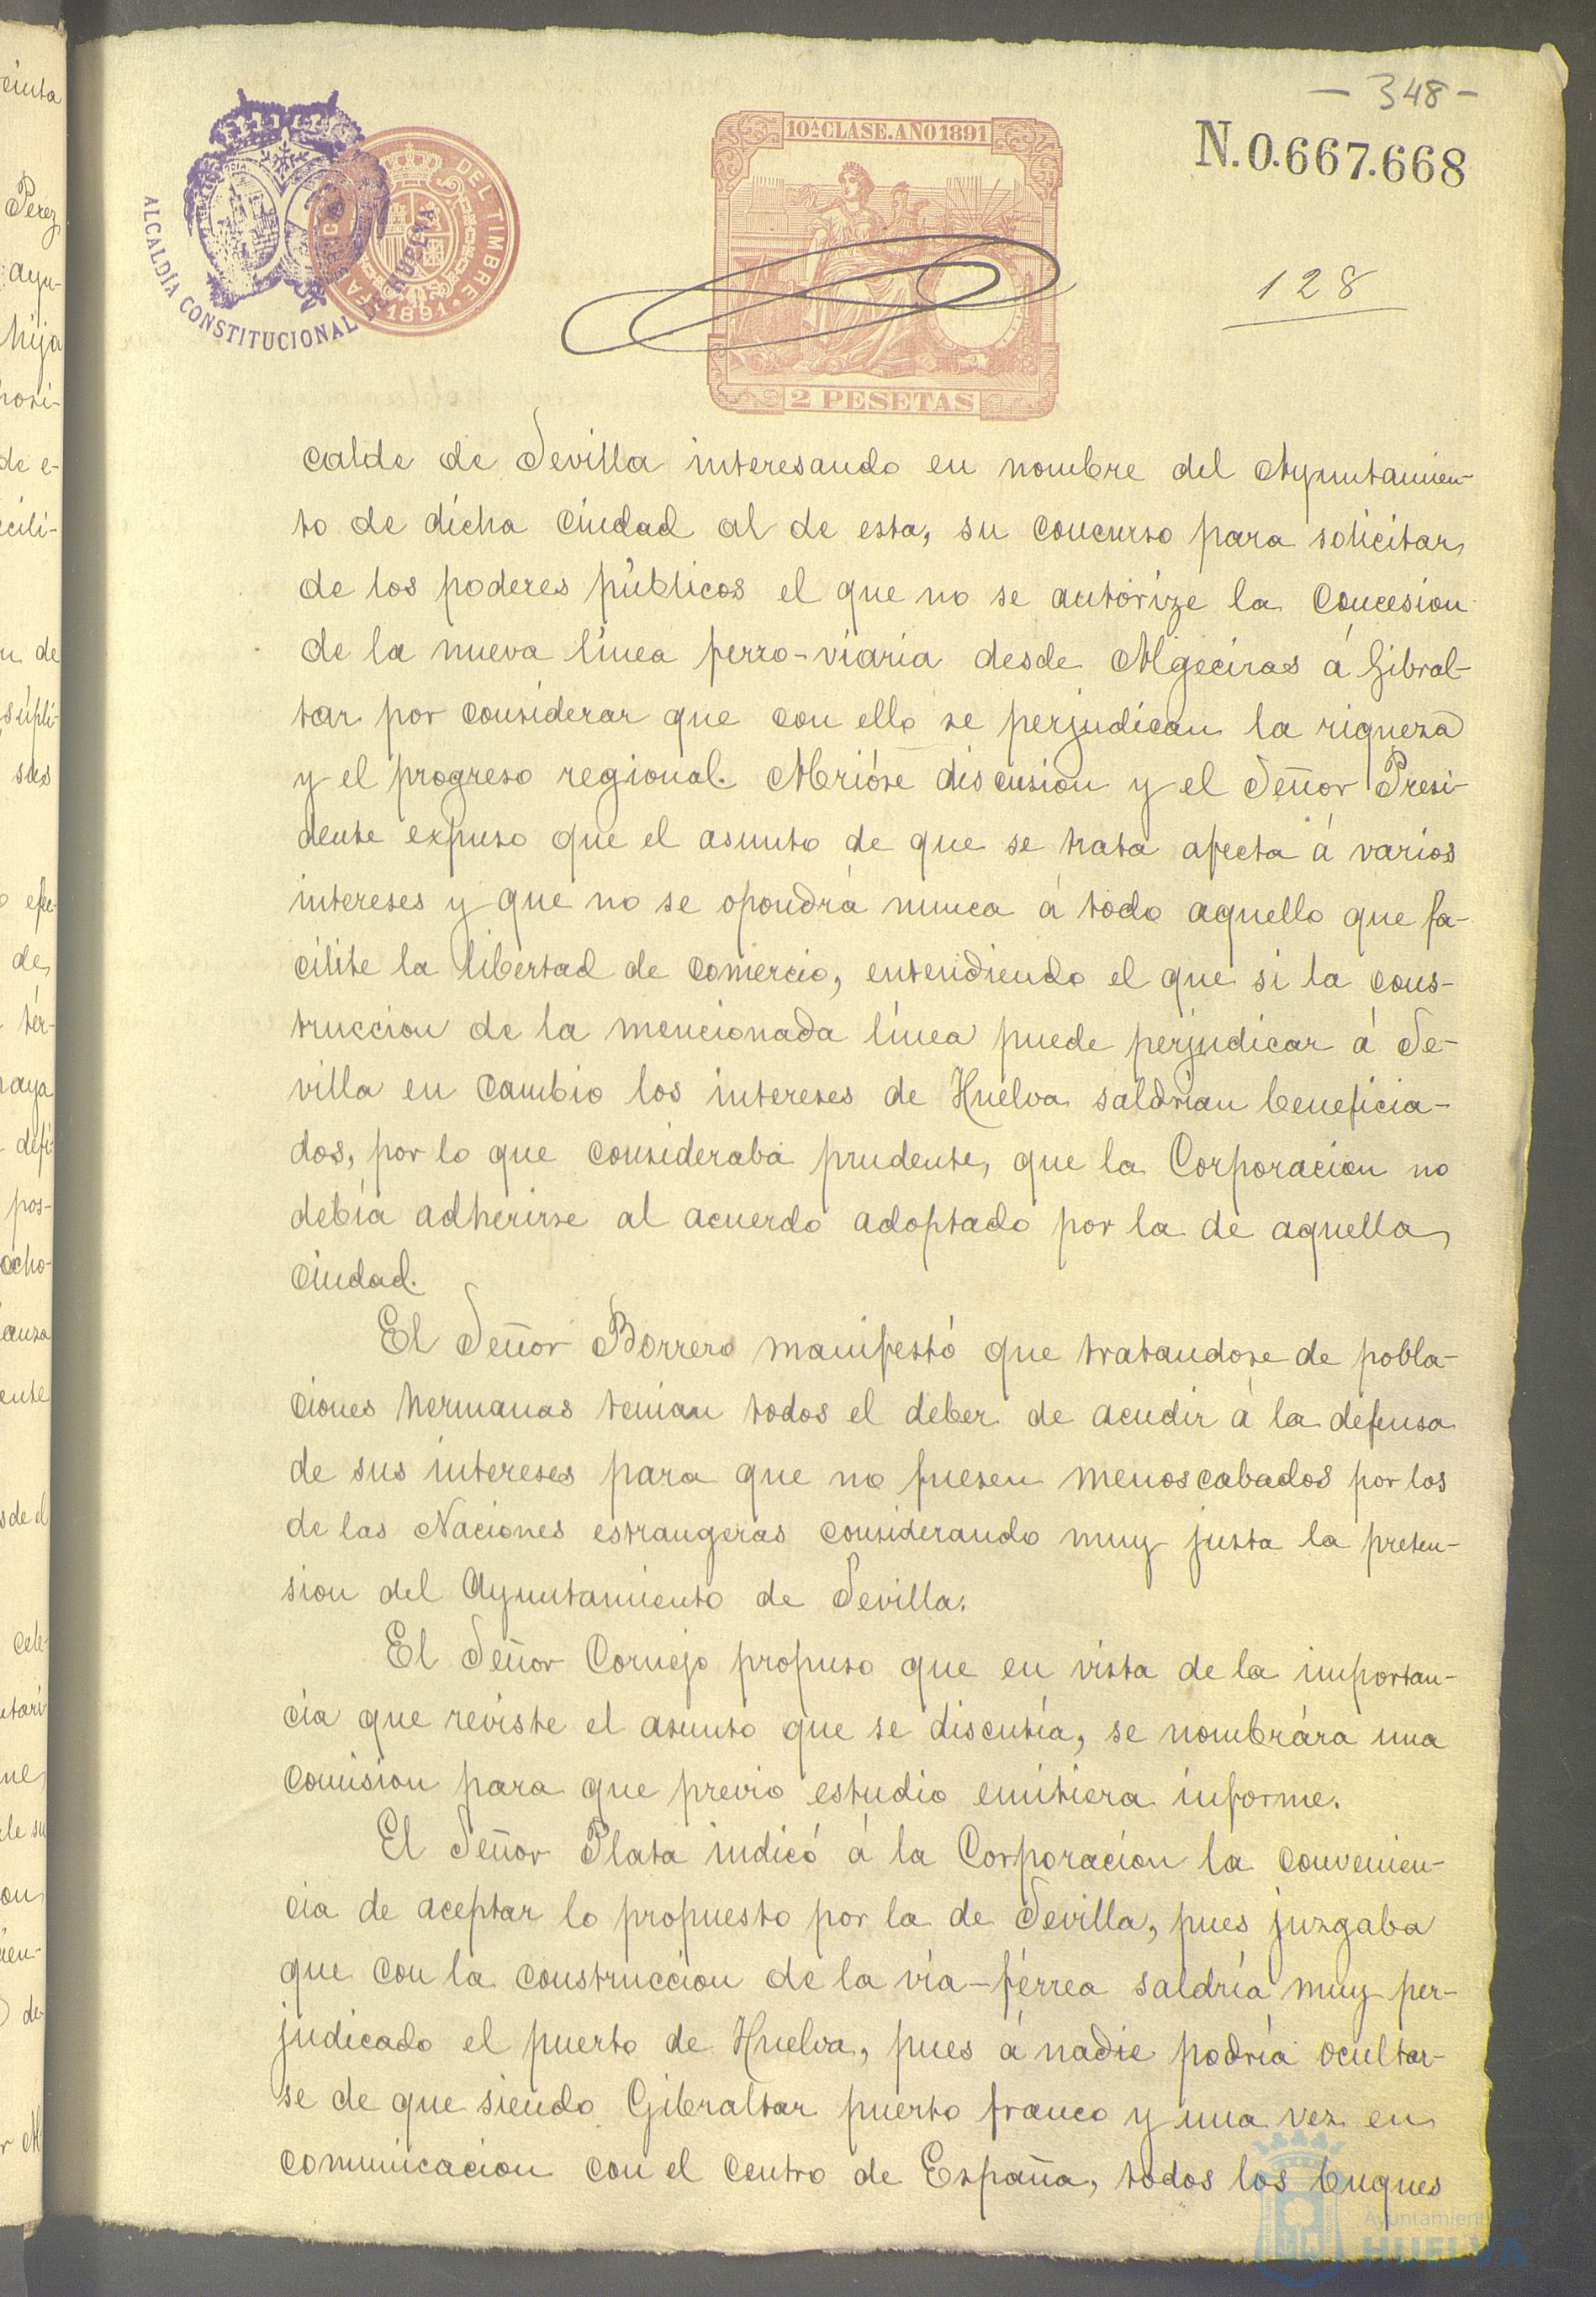 - 348 -
10ª CLASE. AÑO 1891
N.0.667.668
ALCALDÍA CONSTITUCIONAL DE HUELVA
FABRICA DEL TIMBRE
1891
128
2 PESETAS
calde de Sevilla interesando en nombre del Ayuntamien-
to de dicha Ciudad al de esta, su concurso para solicitar
de los poderes públicos el que no se autorize la Concesion
de la nueva línea ferro-viaria desde Algeciras á Gibral-
tar por considerar que con ello se perjudican la riqueza
y el progreso regional. Abrióse discusion y el Señor Presi-
dente expuso que el asunto de que se trata afecta á varios
intereses y que no se opondrá nunca á todo aquello que fa-
cilite la libertad de comercio, entendiendo el que si la cons-
truccion de la mencionada línea puede perjudicar á Se-
villa en cambio los intereses de Huelva saldrian beneficia-
dos, por lo que consideraba prudente, que la Corporacion no
debía adherirse al acuerdo adoptado por la de aquella
Ciudad.
El Señor Borrero manifestó que tratandose de pobla-
ciones hermanas tenian todos el deber de acudir á la defensa
de sus intereses para que no fuesen menoscabados por los
de las Naciones estrangeras considerando muy justa la preten-
sion del Ayuntamiento de Sevilla.
El Señor Cornejo propuso que en vista de la importan-
cia que reviste el asunto que se discutía, se nombrára una
Comision para que previo estudio emitiera informe.
El Señor Plata indicó á la Corporacion la convenien-
cia de aceptar lo propuesto por la de Sevilla, pues juzgaba
que con la construccion de la vía-férrea saldría muy per-
judicado el puerto de Huelva, pues á nadie podría ocultar-
se de que siendo Gibraltar puerto franco y una vez en
comunicacion con el Centro de España, todos los buques
Ayuntamiento
HUELVA